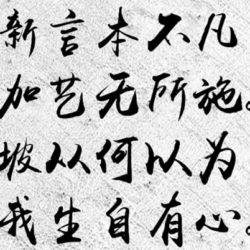 新言本不凡
加艺无所施。
坡从何以为
我生自有心。